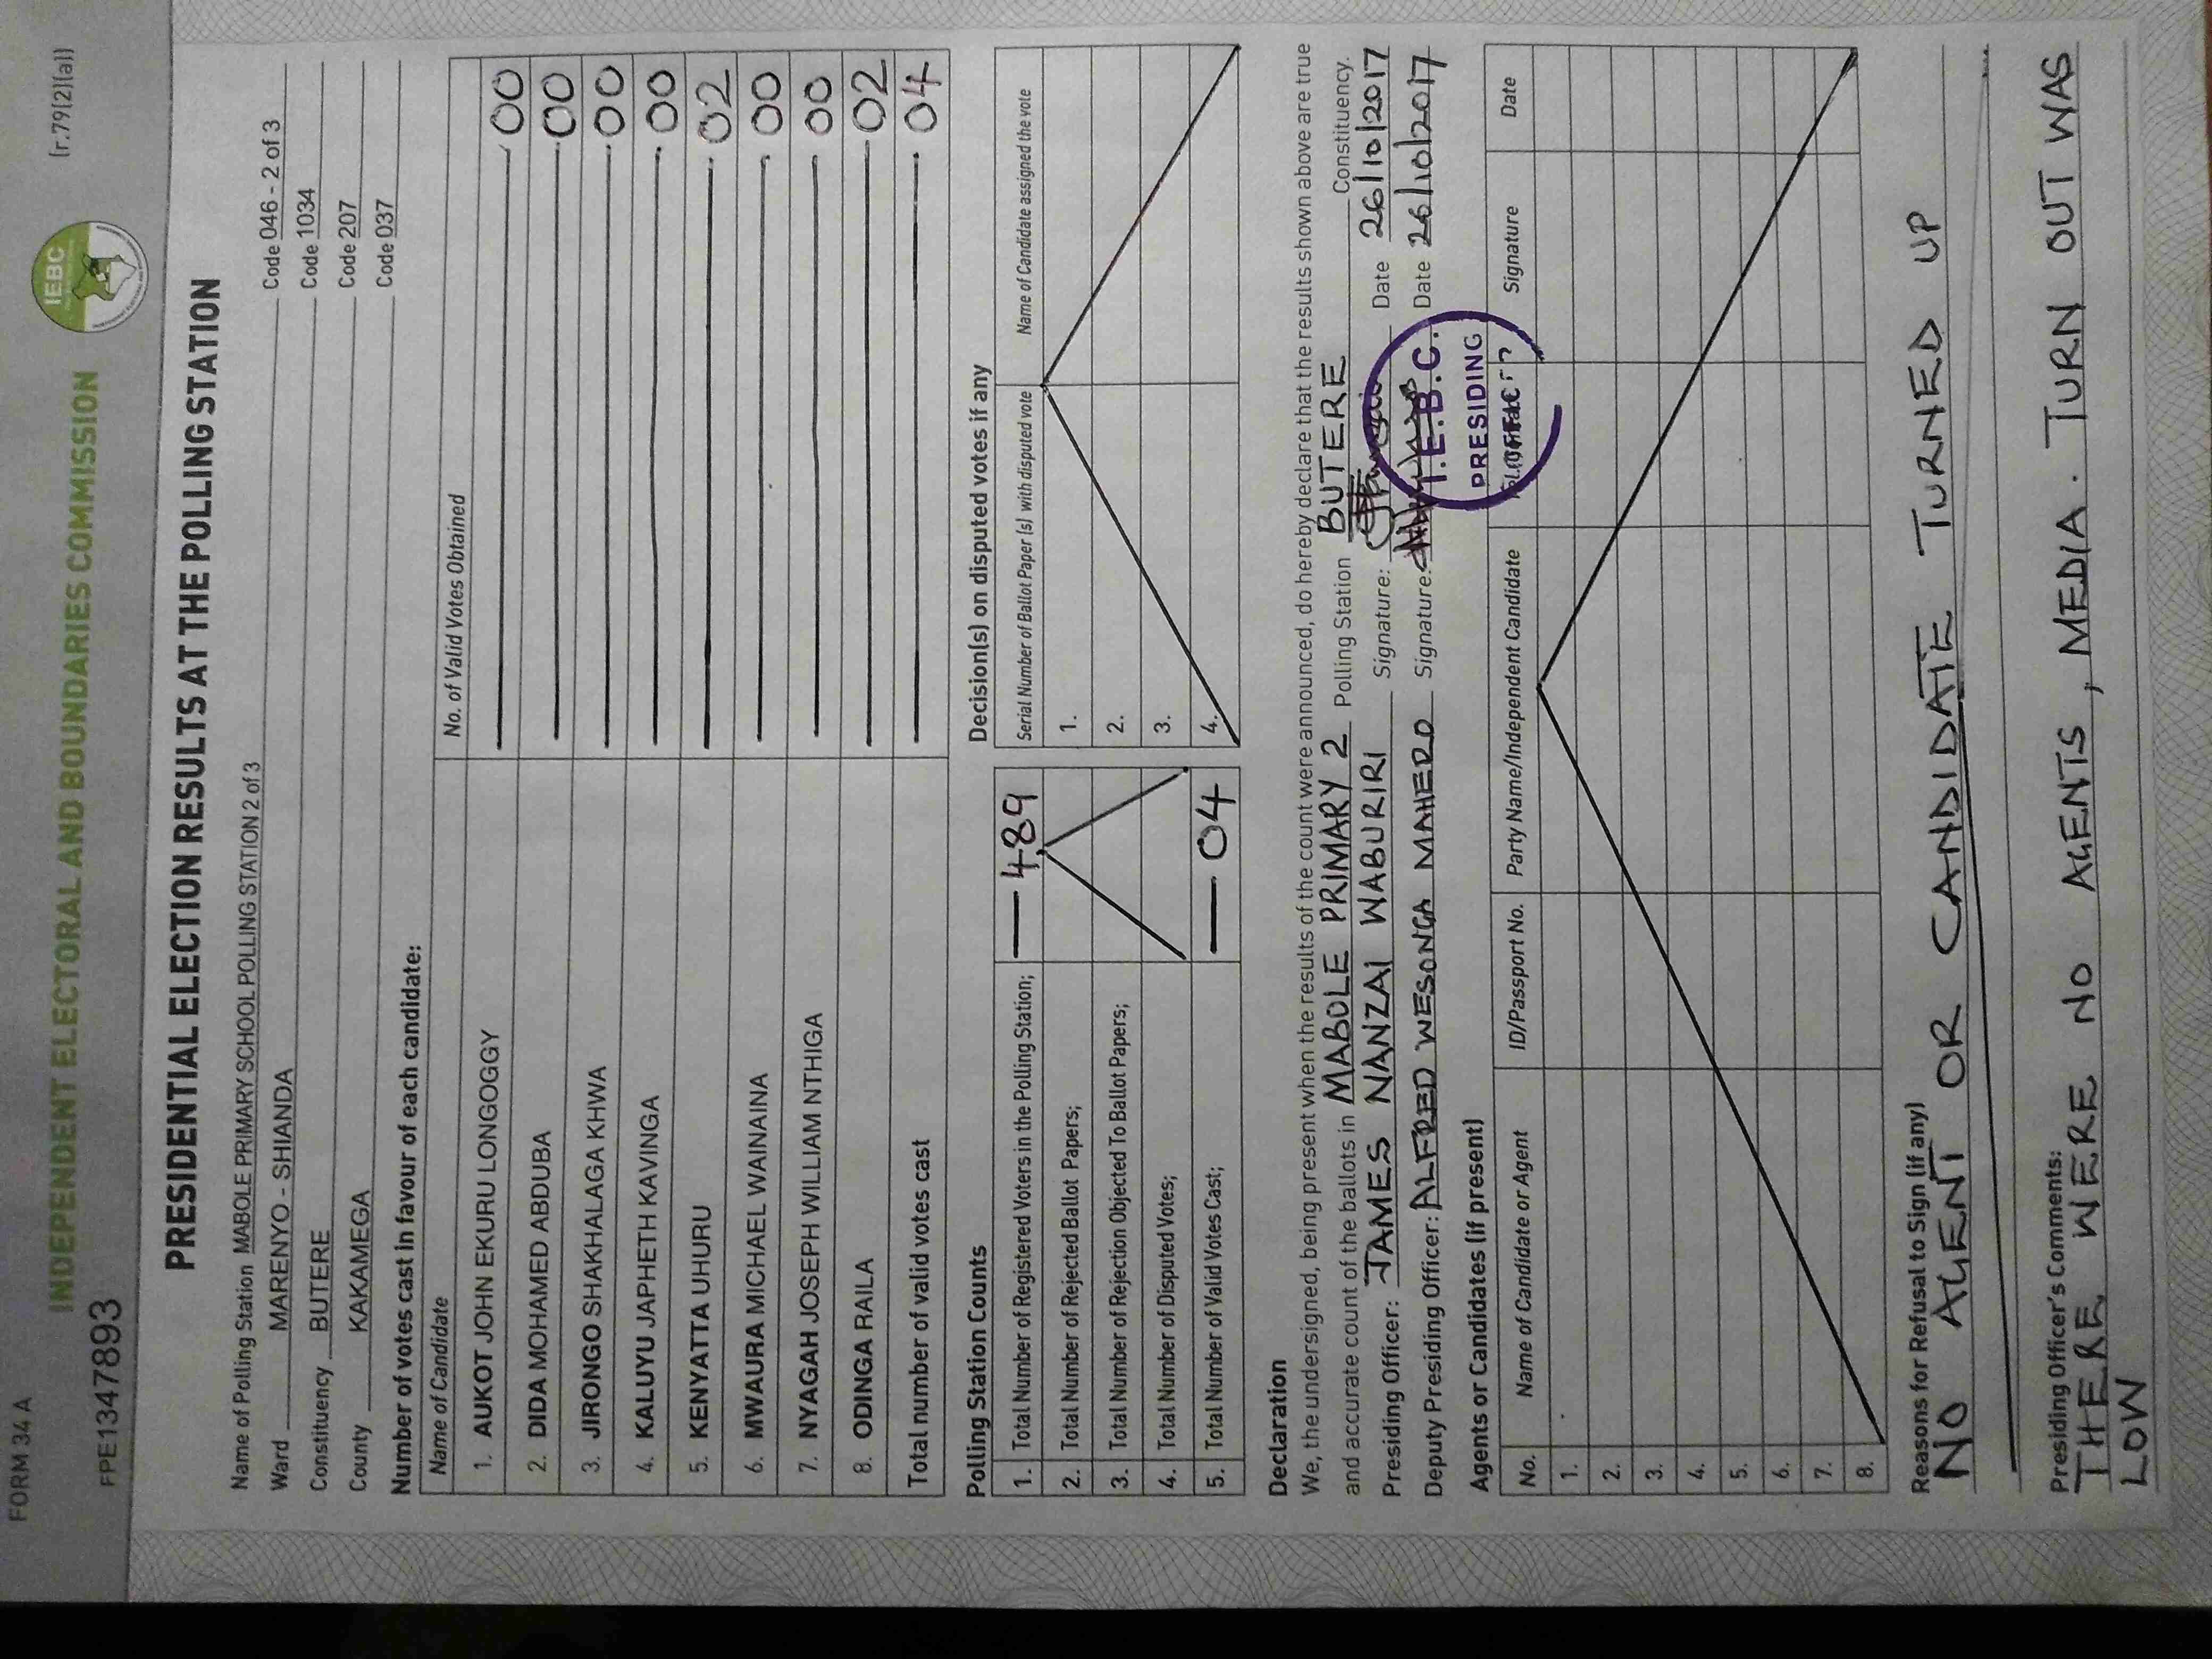 FORM 34 A
(r.79(2)(a))
IEBC
INDEPENDENT ELECTORAL AND BOUNDARIES COMMISSION
FPE1347893
PRESIDENTIAL ELECTION RESULTS AT THE POLLING STATION
Name of Polling Station MABOLE PRIMARY SCHOOL POLLING STATION 2 of 3 Code 046 - 2 of 3
Ward MARENYO - SHIANDA Code 1034
Constituency BUTERE Code 207
County KAKAMEGA Code 037
Number of votes cast in favour of each candidate:
Name of Candidate No. of Valid Votes Obtained
1. AUKOT JOHN EKURU LONGOGGY 00
2. DIDA MOHAMED ABDUBA 00
3. JIRONGO SHAKHALAGA KHWA 00
4. KALUYU JAPHETH KAVINGA 00
5. KENYATTA UHURU 02
6. MWAURA MICHAEL WAINAINA 00
7. NYAGAH JOSEPH WILLIAM NTHIGA 00
8. ODINGA RAILA 02
Total number of valid votes cast 04
Polling Station Counts
1. Total Number of Registered Voters in the Polling Station; 489
2. Total Number of Rejected Ballot Papers;
3. Total Number of Rejection Objected To Ballot Papers;
4. Total Number of Disputed Votes;
5. Total Number of Valid Votes Cast; 04
Decision(s) on disputed votes if any
Serial Number of Ballot Paper (s) with disputed vote Name of Candidate assigned the vote
1.
2.
3.
4.
Declaration
We, the undersigned, being present when the results of the count were announced, do hereby declare that the results shown above are true
and accurate count of the ballots in MABOLE PRIMARY 2 Polling Station BUTERE Constituency.
Presiding Officer: JAMES NANZAI WABURIRI Signature: Date 26/10/2017
Deputy Presiding Officer: ALFRED WESONGA MAHERO Signature: Date 26/10/2017
I.E.B.C.
PRESIDING
Agents or Candidates (if present)
No. Name of Candidate or Agent ID/Passport No. Party Name/Independent Candidate Signature Date
1.
2.
3.
4.
5.
6.
7.
8.
Reasons for Refusal to Sign (if any)
NO AGENT OR CANDIDATE TURNED UP
Presiding Officer's Comments:
THERE WERE NO AGENTS, MEDIA. TURN OUT WAS
LOW